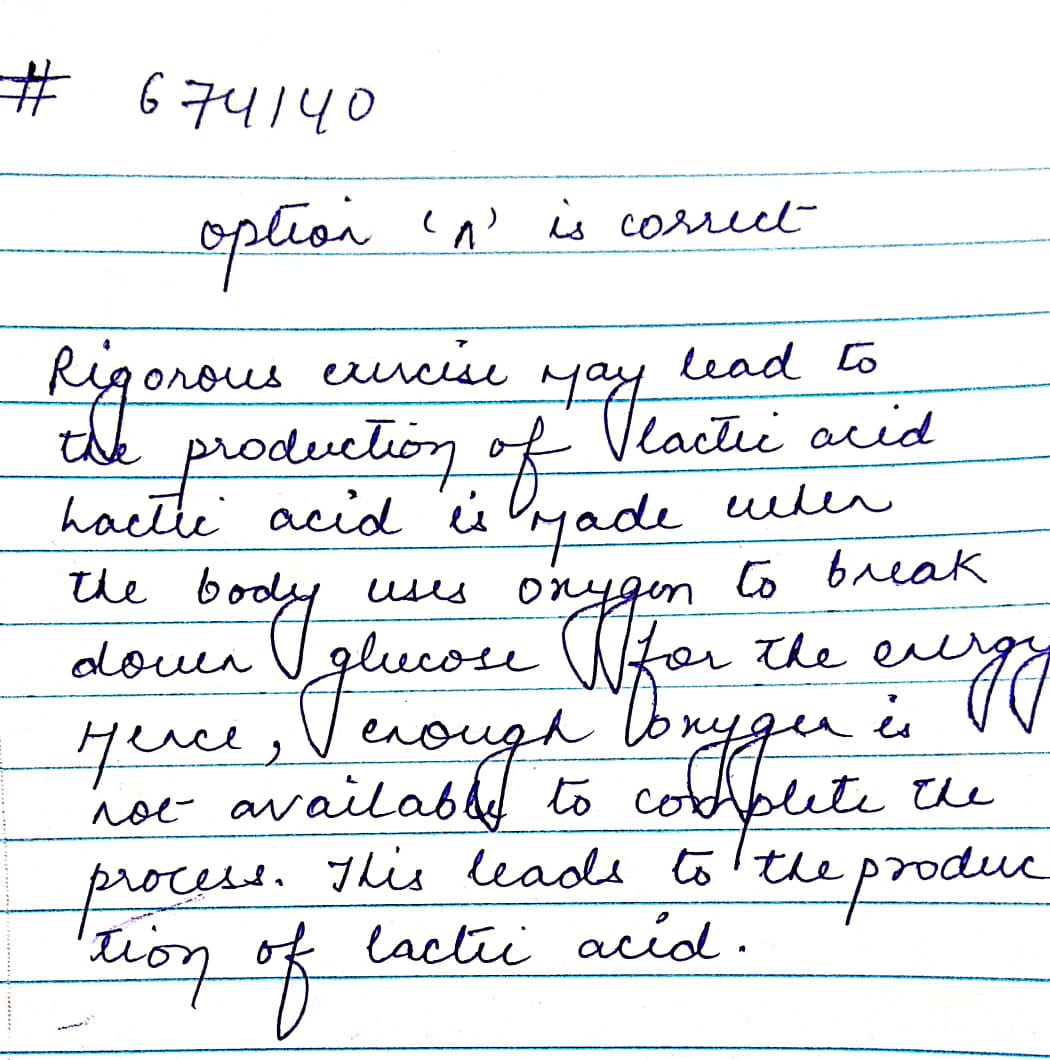 # 674140
option 'A' is correct
Rigorous exercise may lead to
the production of lactic acid
Lactic acid is made when
the body uses oxygen to break
down glucose for the energy
Hence, enough oxygen is
not available to complete the
process. This leads to the produc
tion of lactic acid.